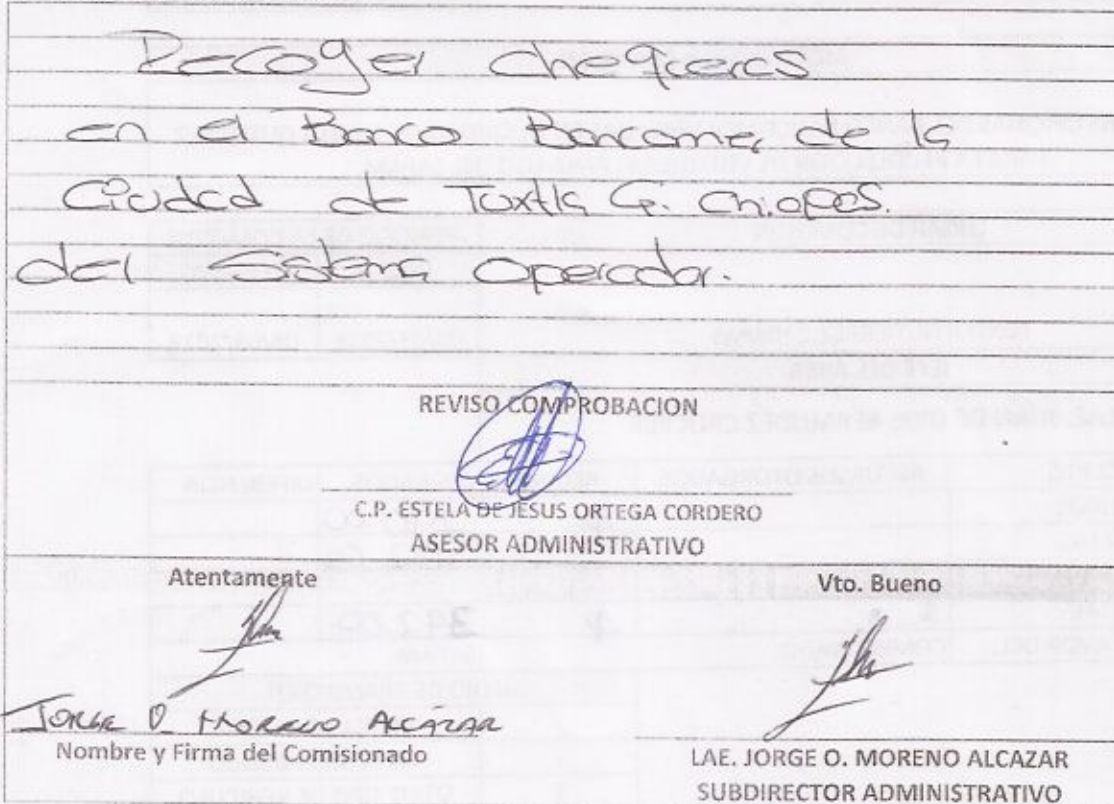 Recoger chequeras
en el Banco Bancomer de la
Ciudad de Tuxtla G. Chiapas.
del Sistema Operador.
REVISO COMPROBACION
C.P. ESTELA DE JESUS ORTEGA CORDERO
ASESOR ADMINISTRATIVO
Atentamente
Vto. Bueno
JORGE O. MORENO ALCAZAR
Nombre y Firma del Comisionado
LAE. JORGE O. MORENO ALCAZAR
SUBDIRECTOR ADMINISTRATIVO